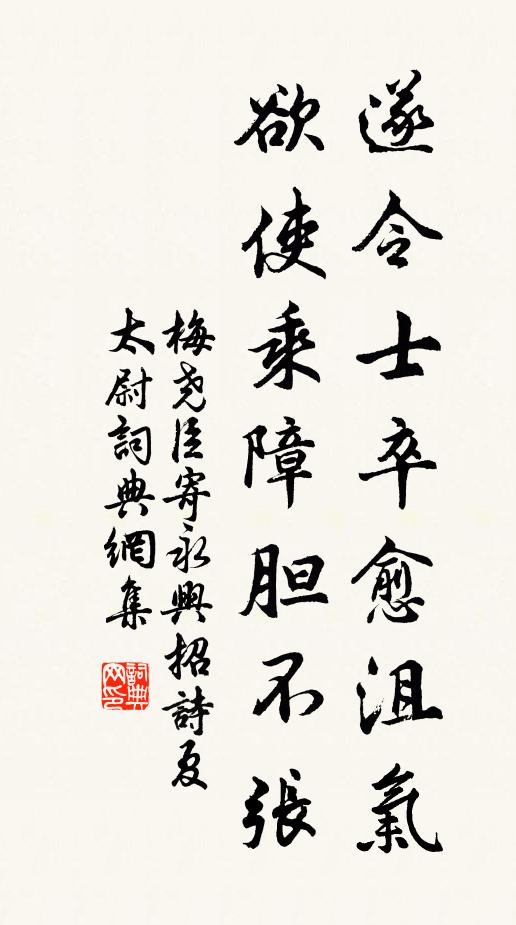 遂令士卒愈沮氣
欲使乘障胆不張
梅堯臣寄永興招詩夏
太尉詞典網集
詞典
网印